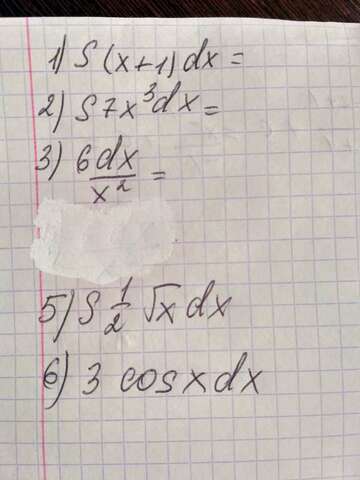 1) ∫(x+1)dx=
2) ∫7x³dx=
3) 6dx/x² =
5) ∫ 1/2 √x dx
6) 3 cosxdx